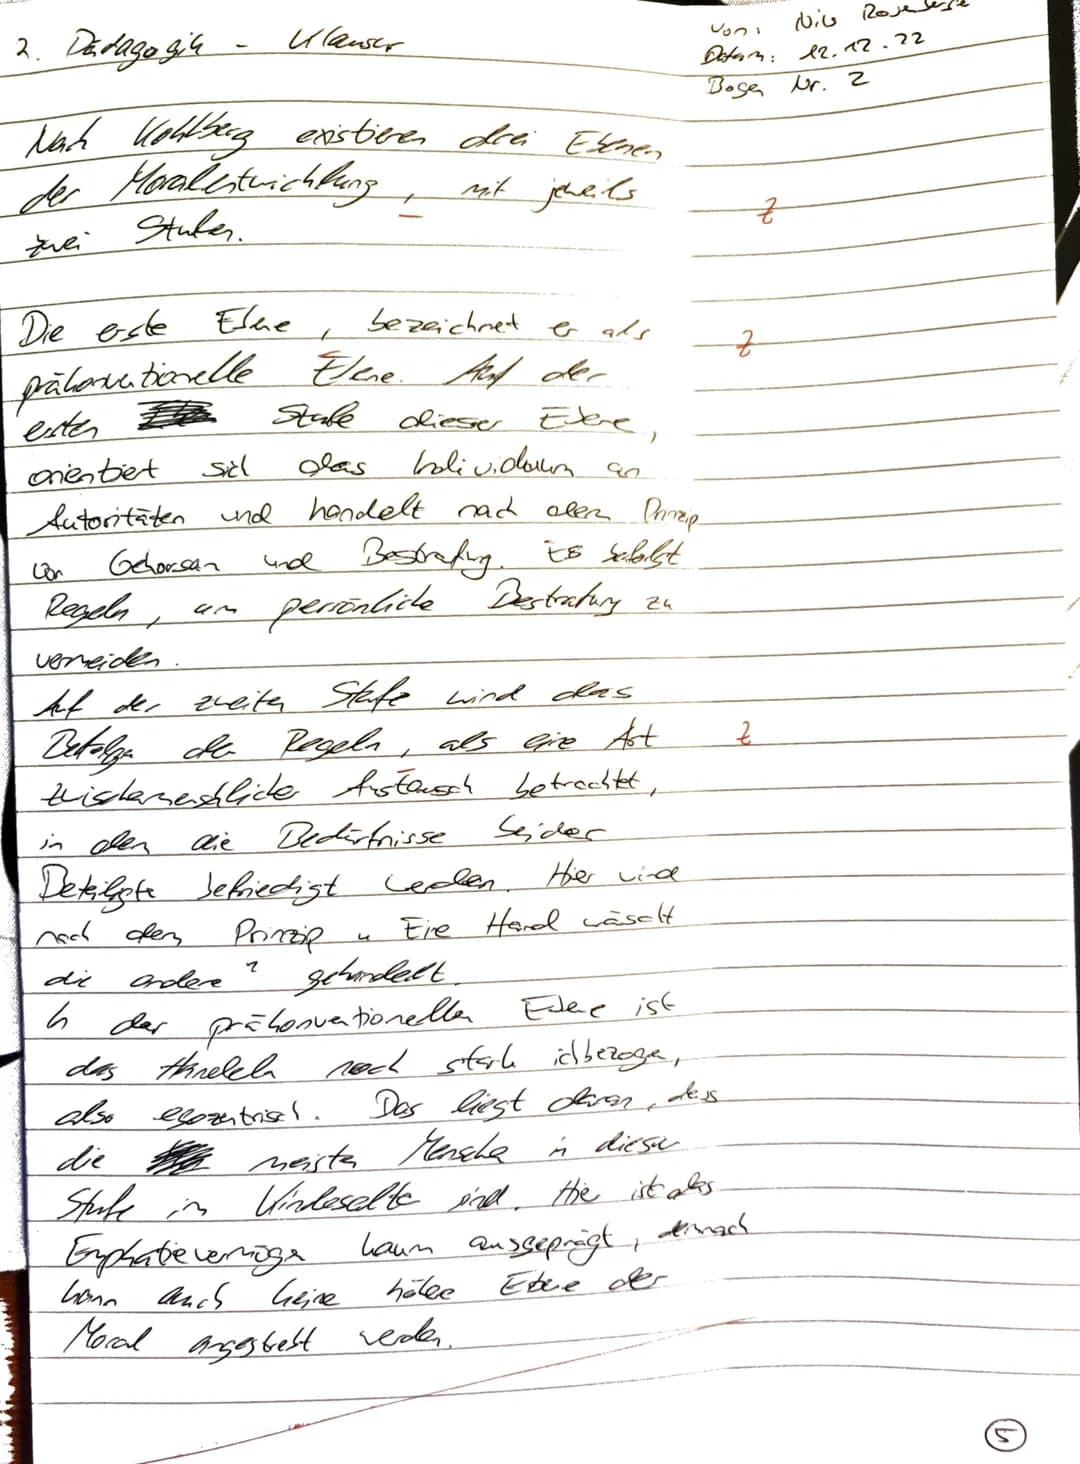 2. Pädagogik - Klausur
Von: Nils
Datum: 12.12.22
Bogen Nr. 2
Nach Kohlberg existieren drei Ebenen
der Moralentwicklung, mit jeweils
Z
zwei Stufen.
Die erste Ebene, bezeichnet er als
Z
präkonventionelle Ebene. Auf der
ersten Stufe dieser Ebene,
orientiert sich das Individuum an
Autoritäten und handelt nach dem Prinzip
von Gehorsam und Bestrafung. Es befolgt
Regeln, um persönliche Bestrafung zu
vermeiden.
Auf der zweiten Stufe wird das
Befolgen der Regeln, als eine Art
Z
zwischenmenschlicher Austausch betrachtet,
in dem die Bedürfnisse beider
Beteiligten befriedigt werden. Hier wird
nach dem Prinzip "Eine Hand wäscht
die andere" gehandelt.
In der präkonventionellen Ebene ist
das Handeln noch stark ichbezogen,
also egozentrisch. Das liegt daran, dass
die meisten Menschen in dieser
Stufe im Kindesalter sind. Hier ist das
Emphatievermögen kaum ausgeprägt, demnach
kann auch keine höhere Ebene der
Moral angestrebt werden.
5